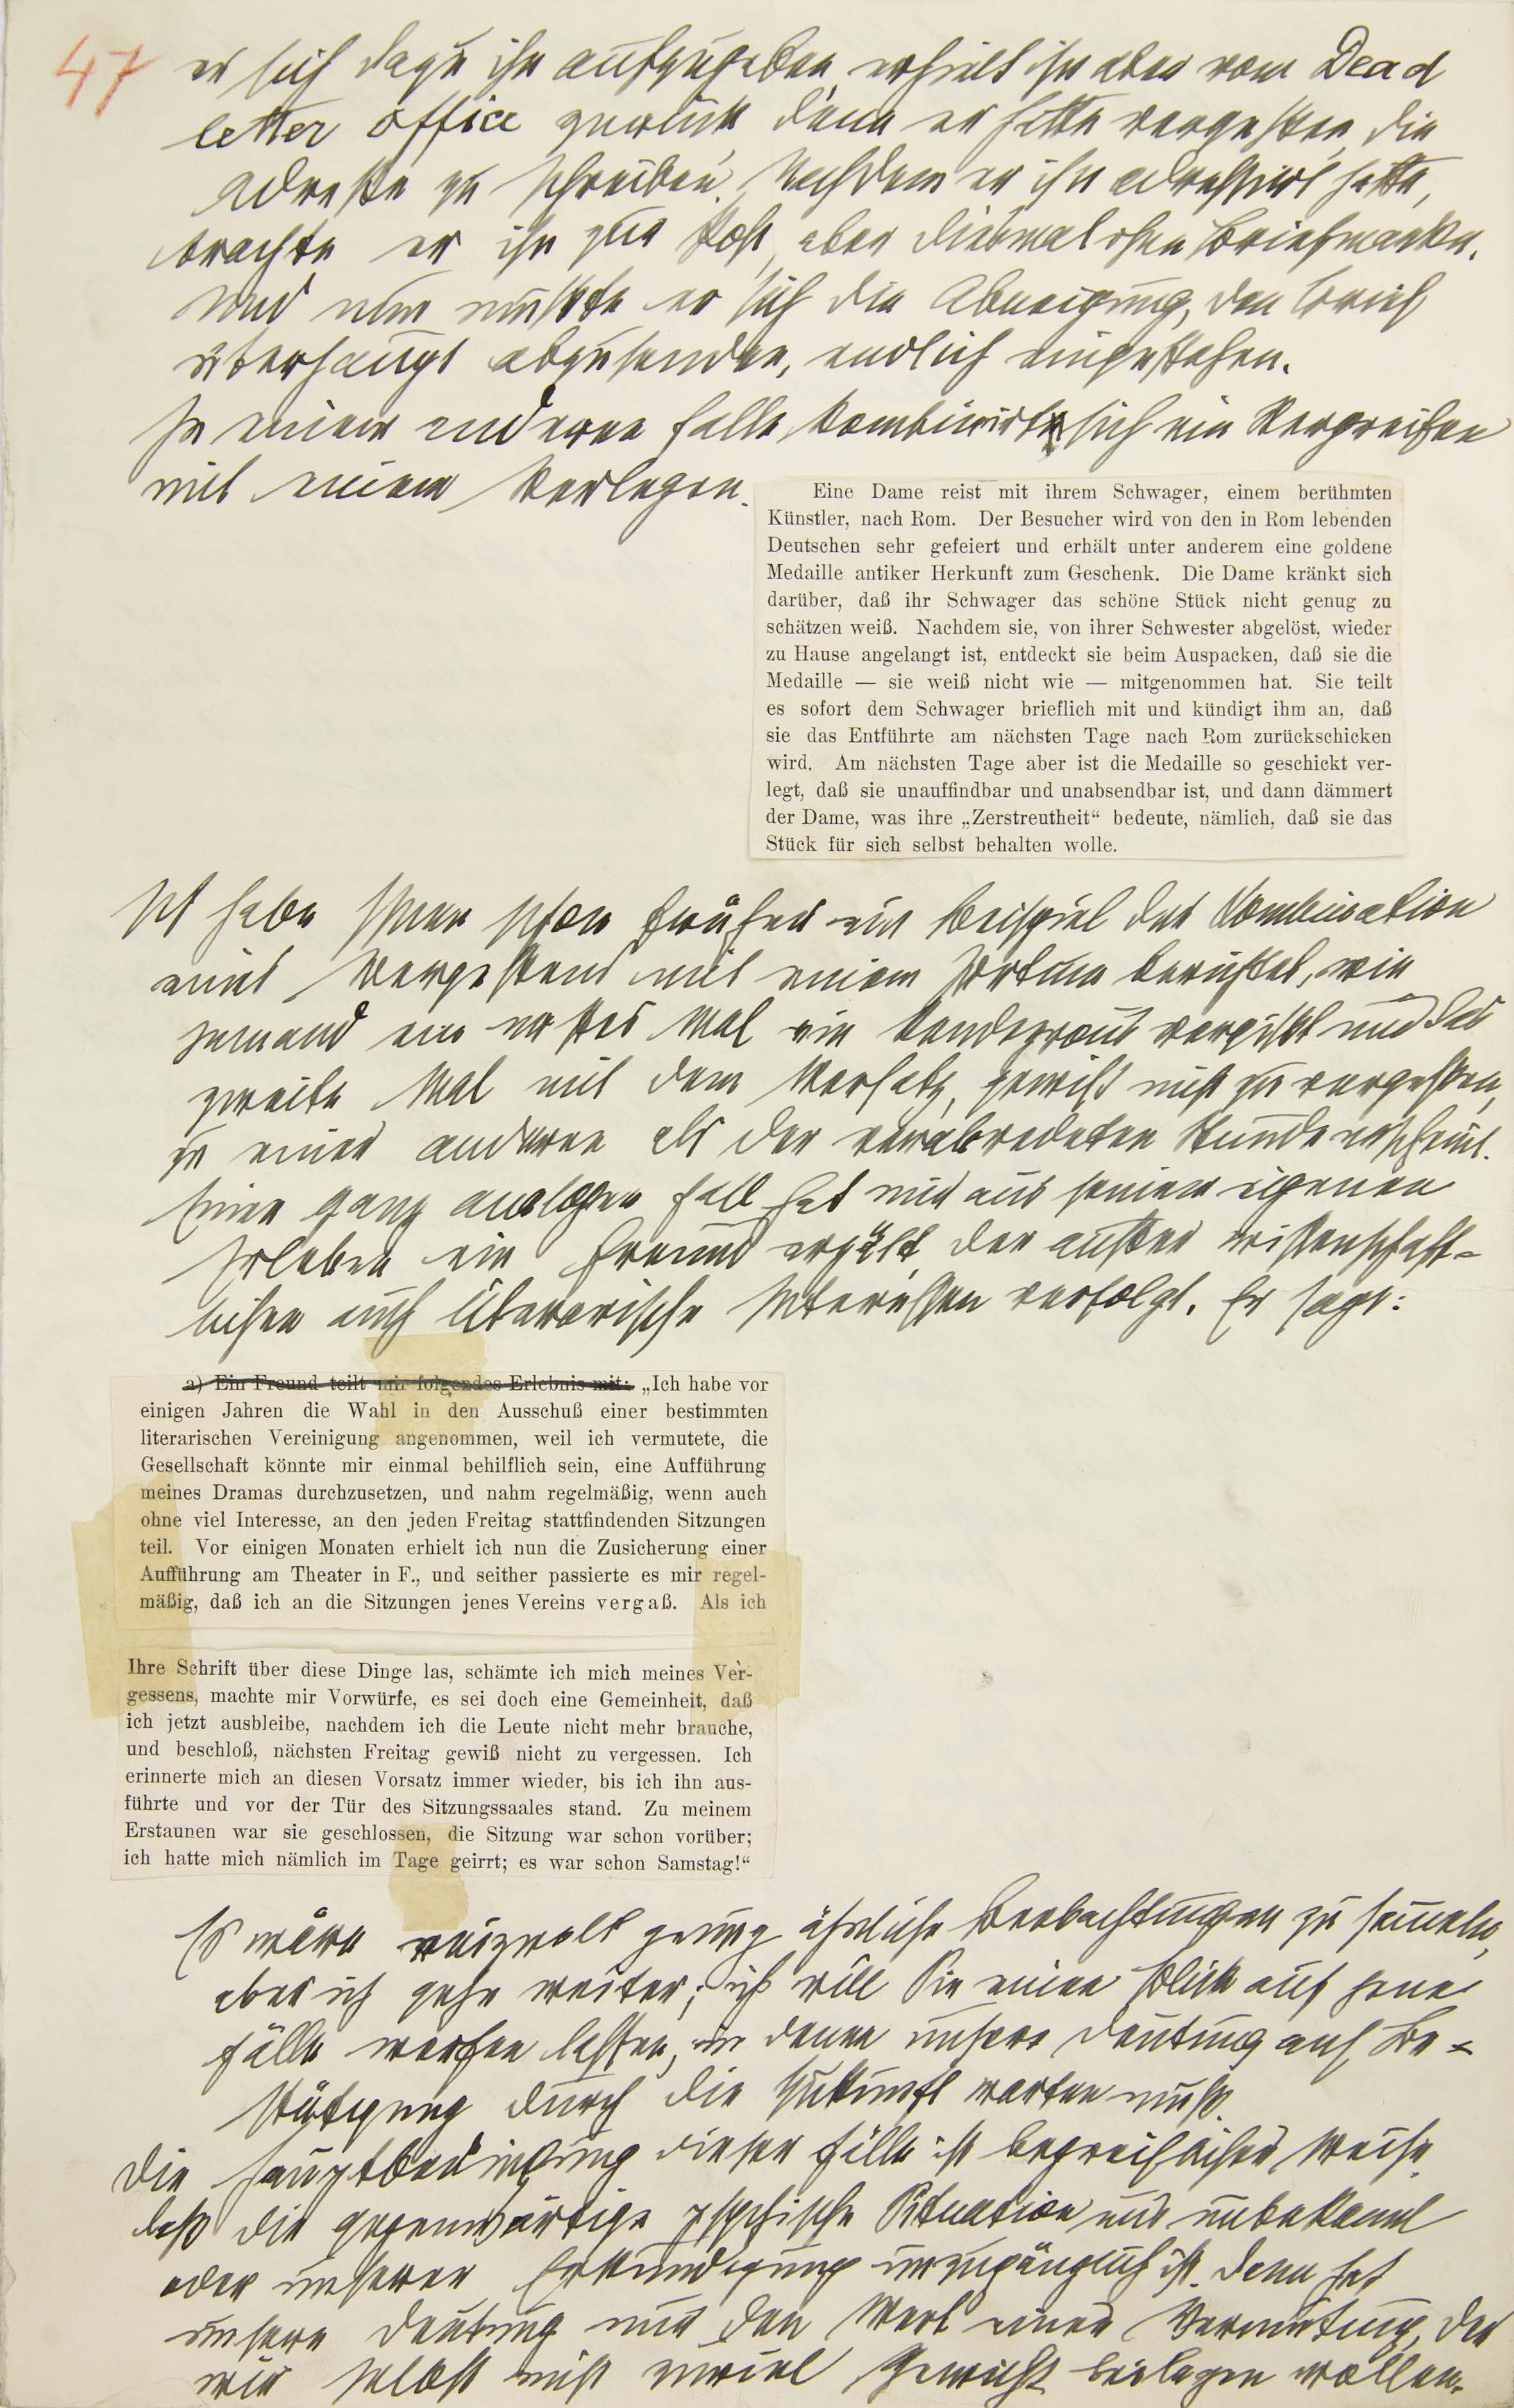 47
er sich dazu ihn aufzugeben, erhielt ihn aber vom Dead
letter office zurück, denn er hatte vergessen, die
Adresse zu schreiben. Nachdem er ihn adressirt hatte,
brachte er ihn zur Post, aber diesmal ohne Briefmarke.
Und nun mußte er sich die Abneigung, den Brief
überhaupt abzusenden, endlich eingestehen.
In einem anderen Falle kombinirt sich ein Vergreifen
mit einem Verlegen.
Eine Dame reist mit ihrem Schwager, einem berühmten
Künstler, nach Rom. Der Besucher wird von den in Rom lebenden
Deutschen sehr gefeiert und erhält unter anderem eine goldene
Medaille antiker Herkunft zum Geschenk. Die Dame kränkt sich
darüber, daß ihr Schwager das schöne Stück nicht genug zu
schätzen weiß. Nachdem sie, von ihrer Schwester abgelöst, wieder
zu Hause angelangt ist, entdeckt sie beim Auspacken, daß sie die
Medaille — sie weiß nicht wie — mitgenommen hat. Sie teilt
es sofort dem Schwager brieflich mit und kündigt ihm an, daß
sie das Entführte am nächsten Tage nach Rom zurückschicken
wird. Am nächsten Tage aber ist die Medaille so geschickt ver-
legt, daß sie unauffindbar und unabsendbar ist, und dann dämmert
der Dame, was ihre „Zerstreutheit“ bedeute, nämlich, daß sie das
Stück für sich selbst behalten wolle.
Ich habe Ihnen schon früher ein Beispiel der Kombination
eines Vergessens mit einem Irrtum berichtet, wie
jemand ein erstes Mal ein Rendezvous vergißt und das
zweite Mal mit dem Vorsatz, gewiß nicht zu vergessen,
zu einer anderen als der verabredeten Stunde erscheint.
Einen ganz analogen Fall hat mir aus seinem eigenen
Erleben ein Freund erzält, der außer wissenschaft-
lichen auch literarische Interessen verfolgt. Er sagt:
a) Ein Freund teilt mir folgendes Erlebnis mit: „Ich habe vor
einigen Jahren die Wahl in den Ausschuß einer bestimmten
literarischen Vereinigung angenommen, weil ich vermutete, die
Gesellschaft könnte mir einmal behilflich sein, eine Aufführung
meines Dramas durchzusetzen, und nahm regelmäßig, wenn auch
ohne viel Interesse, an den jeden Freitag stattfindenden Sitzungen
teil. Vor einigen Monaten erhielt ich nun die Zusicherung einer
Aufführung am Theater in F., und seither passierte es mir regel-
mäßig, daß ich an die Sitzungen jenes Vereins vergaß. Als ich
Ihre Schrift über diese Dinge las, schämte ich mich meines Ver-
gessens, machte mir Vorwürfe, es sei doch eine Gemeinheit, daß
ich jetzt ausbleibe, nachdem ich die Leute nicht mehr brauche,
und beschloß, nächsten Freitag gewiß nicht zu vergessen. Ich
erinnerte mich an diesen Vorsatz immer wieder, bis ich ihn aus-
führte und vor der Tür des Sitzungssaales stand. Zu meinem
Erstaunen war sie geschlossen, die Sitzung war schon vorüber;
ich hatte mich nämlich im Tage geirrt; es war schon Samstag!“
Es wäre reizvoll genug ähnliche Beobachtungen zu sammeln,
aber ich gehe weiter; ich will Sie einen Blick auf jene
Fälle werfen lassen, in denen unsere Deutung auf Be-
stätigung durch die Zukunft warten muß.
Die Hauptbedingung dieser Fälle ist begreiflicher Weise,
daß die gegenwärtige psychische Situation uns unbekannt
oder unserer Erkundigung unzugänglich ist. Dann hat
unsere Deutung nur den Wert einer Vermutung, der
wir selbst nicht zuviel Gewicht beilegen wollen.